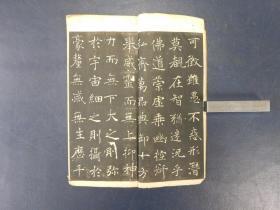 可徵雖愚不惑形潛
莫覩在智猶迷況乎
佛道崇虛乘幽控寂
弘濟萬品典御十方
舉威靈而無上抑神
力而無下大之則彌
於宇宙細之則攝於
豪釐無滅無生歷千